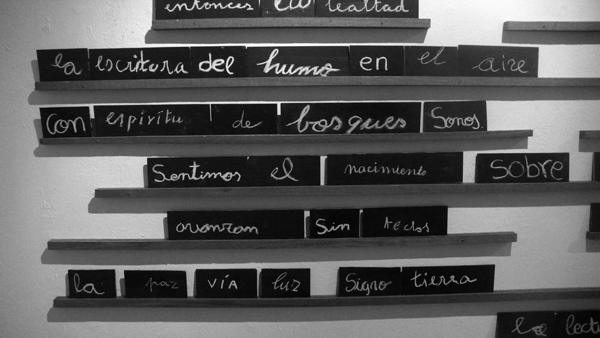 entonces la lealtad
la escritura del humo en el aire
con espíritu de bosques Sonos
Sentimos el nacimiento sobre
avanzan Sin
la paz VÍA luz Signo tierra
la lect